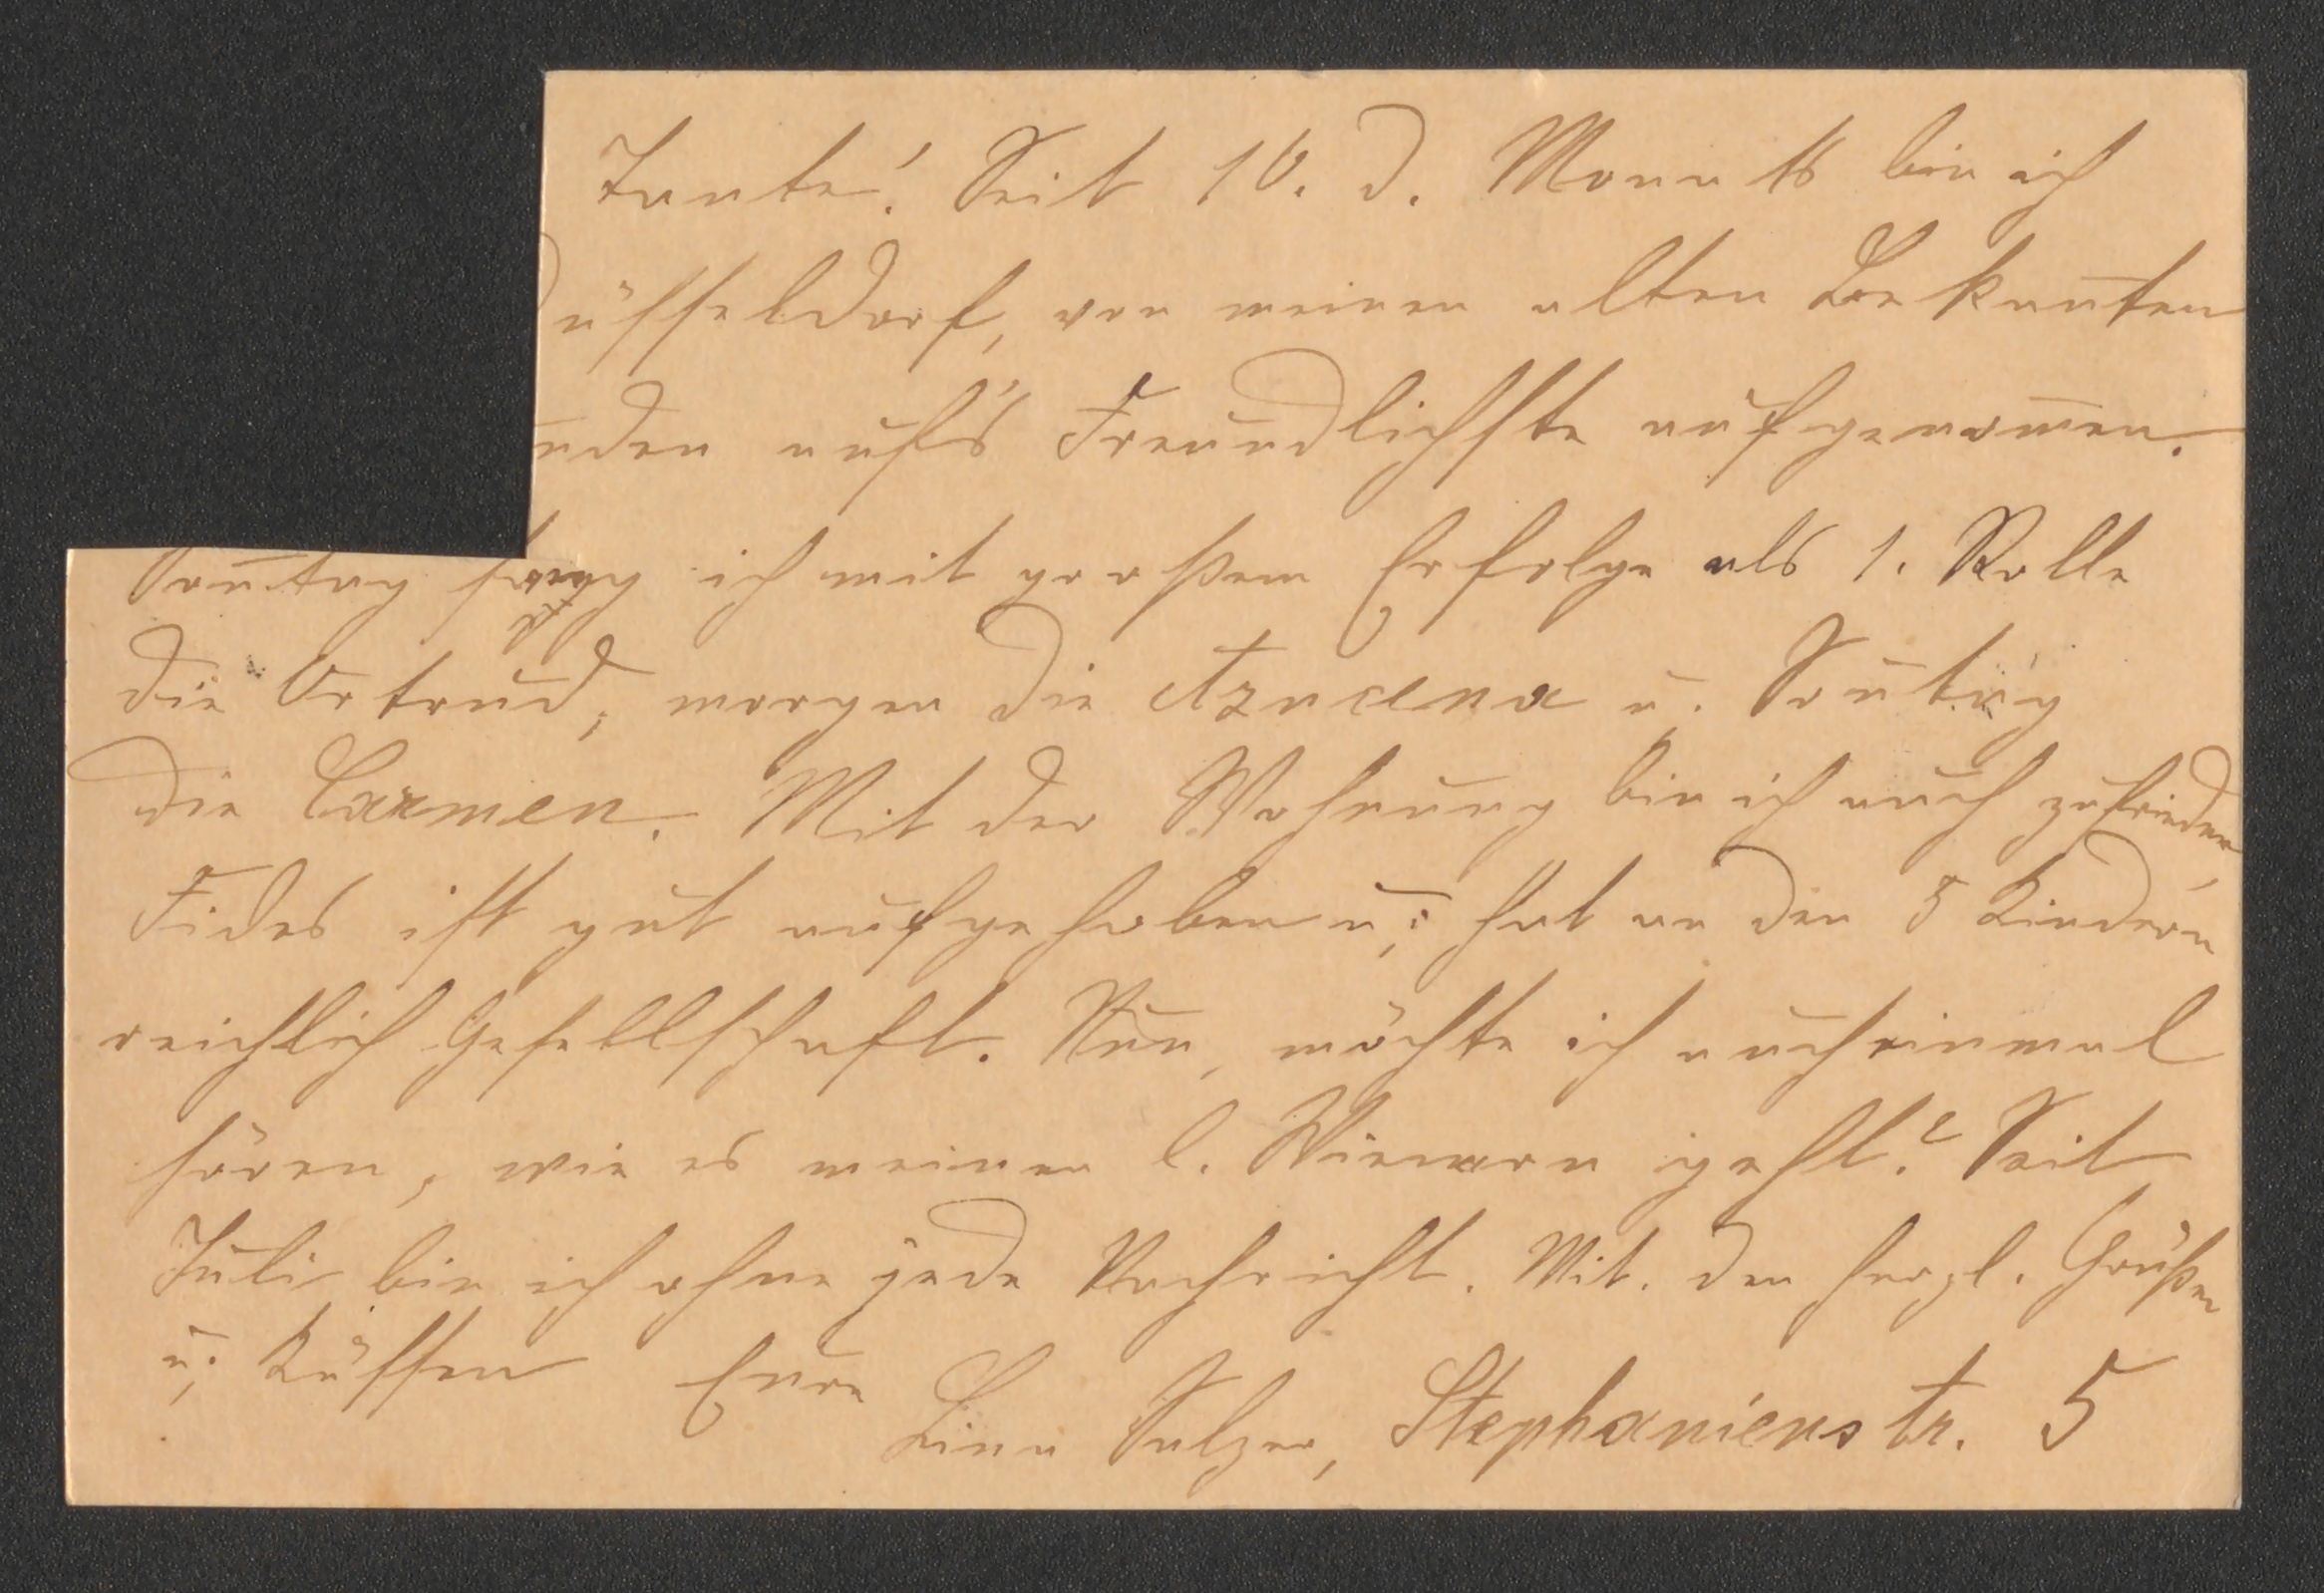 Tante! Seit 10. d. Monats bin ich
Düsseldorf, von meinen alten Bekan̄ten
nden auf's Freundlichste aufgenom̄en.
Son̄tag sang ich mit großem Erfolge als 1. Rolle
die Ortrud, morgen die Azucena u. Son̄tag
die Carmen. Mit der Wohnung bin ich auch zufrieden,
Fides ist gut aufgehoben u. hat an den 5 Kindern
reichlich Gesellschaft. Nun, möchte ich auch einmal
hören, wie es meinen l. Wienern geht? Seit
Juli bin ich ohne jede Nachricht. Mit den herzl. Grüßen
u. Küssen Eure
Lina Sulzer, Stephanienstr. 5